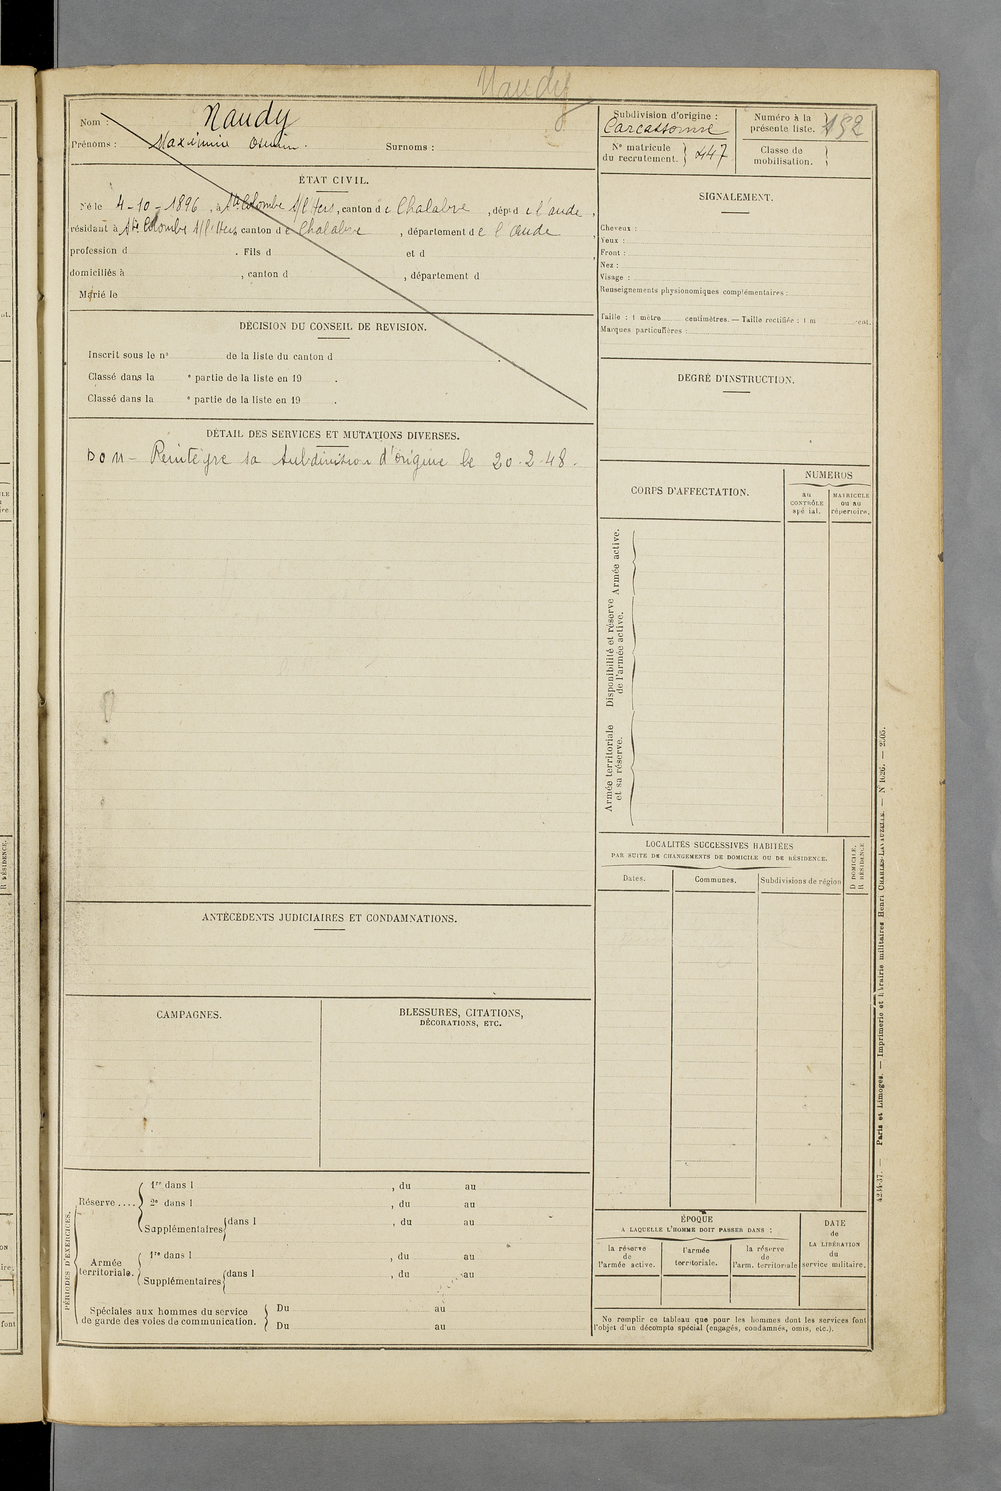 Naudy
Nom : Naudy
Prénoms : Maximin Osmin. Surnoms :
Subdivision d'origine :
Carcassonne
Numéro à la
présente liste. 152
N° matricule
du recrutement. 447
Classe de
mobilisation.
ÉTAT CIVIL.
Né le 4-10-1896, à Ste Colombe s/l'Hers, canton de Chalabre, dépt de l'aude,
résidant à Ste Colombe s/l'Hers canton de Chalabre, département de l'aude
profession d . Fils d et d
domiciliés à , canton d , département d
Marié le
DÉCISION DU CONSEIL DE REVISION.
Inscrit sous le n° de la liste du canton d
Classé dans la e partie de la liste en 19 .
Classé dans la e partie de la liste en 19 .
DÉTAIL DES SERVICES ET MUTATIONS DIVERSES.
Réintègre sa subdivision d'origine le 20.2.48.
ANTÉCÉDENTS JUDICIAIRES ET CONDAMNATIONS.
CAMPAGNES.
BLESSURES, CITATIONS,
DÉCORATIONS, ETC.
PÉRIODES D'EXERCICES.
Réserve ....
1re dans l , du au
2e dans l , du au
Supplémentaires dans l , du au
Armée
territoriale.
1re dans l , du au
Supplémentaires dans l , du au
Spéciales aux hommes du service
de garde des voies de communication.
Du au
Du au
SIGNALEMENT.
Cheveux :
Yeux :
Front :
Nez :
Visage :
Renseignements physionomiques complémentaires :
Taille : 1 mètre centimètres. — Taille rectifiée : 1 m cent.
Marques particulières :
DEGRÉ D'INSTRUCTION.
CORPS D'AFFECTATION.
NUMEROS
au
CONTRÔLE
spécial.
MATRICULE
ou au
répertoire.
Armée active.
Disponibilité et réserve
de l'armée active.
Armée territoriale
et sa réserve.
LOCALITÉS SUCCESSIVES HABITÉES
PAR SUITE DE CHANGEMENTS DE DOMICILE OU DE RÉSIDENCE.
Dates.
Communes.
Subdivisions de région
D DOMICILE.
R RÉSIDENCE
ÉPOQUE
A LAQUELLE L'HOMME DOIT PASSER DANS :
la réserve
de
l'armée active.
l'armée
territoriale.
la réserve
de
l'arm. territoriale
DATE
de
LA LIBÉRATION
du
service militaire.
Ne remplir ce tableau que pour les hommes dont les services font
l'objet d'un décompte spécial (engagés, condamnés, omis, etc.).
4234-37. — Paris et Limoges. — Imprimerie et librairie militaires Henri CHARLES-LAVAUZELLE. — N° 1626. — 2.05.
R RÉSIDENCE.
font